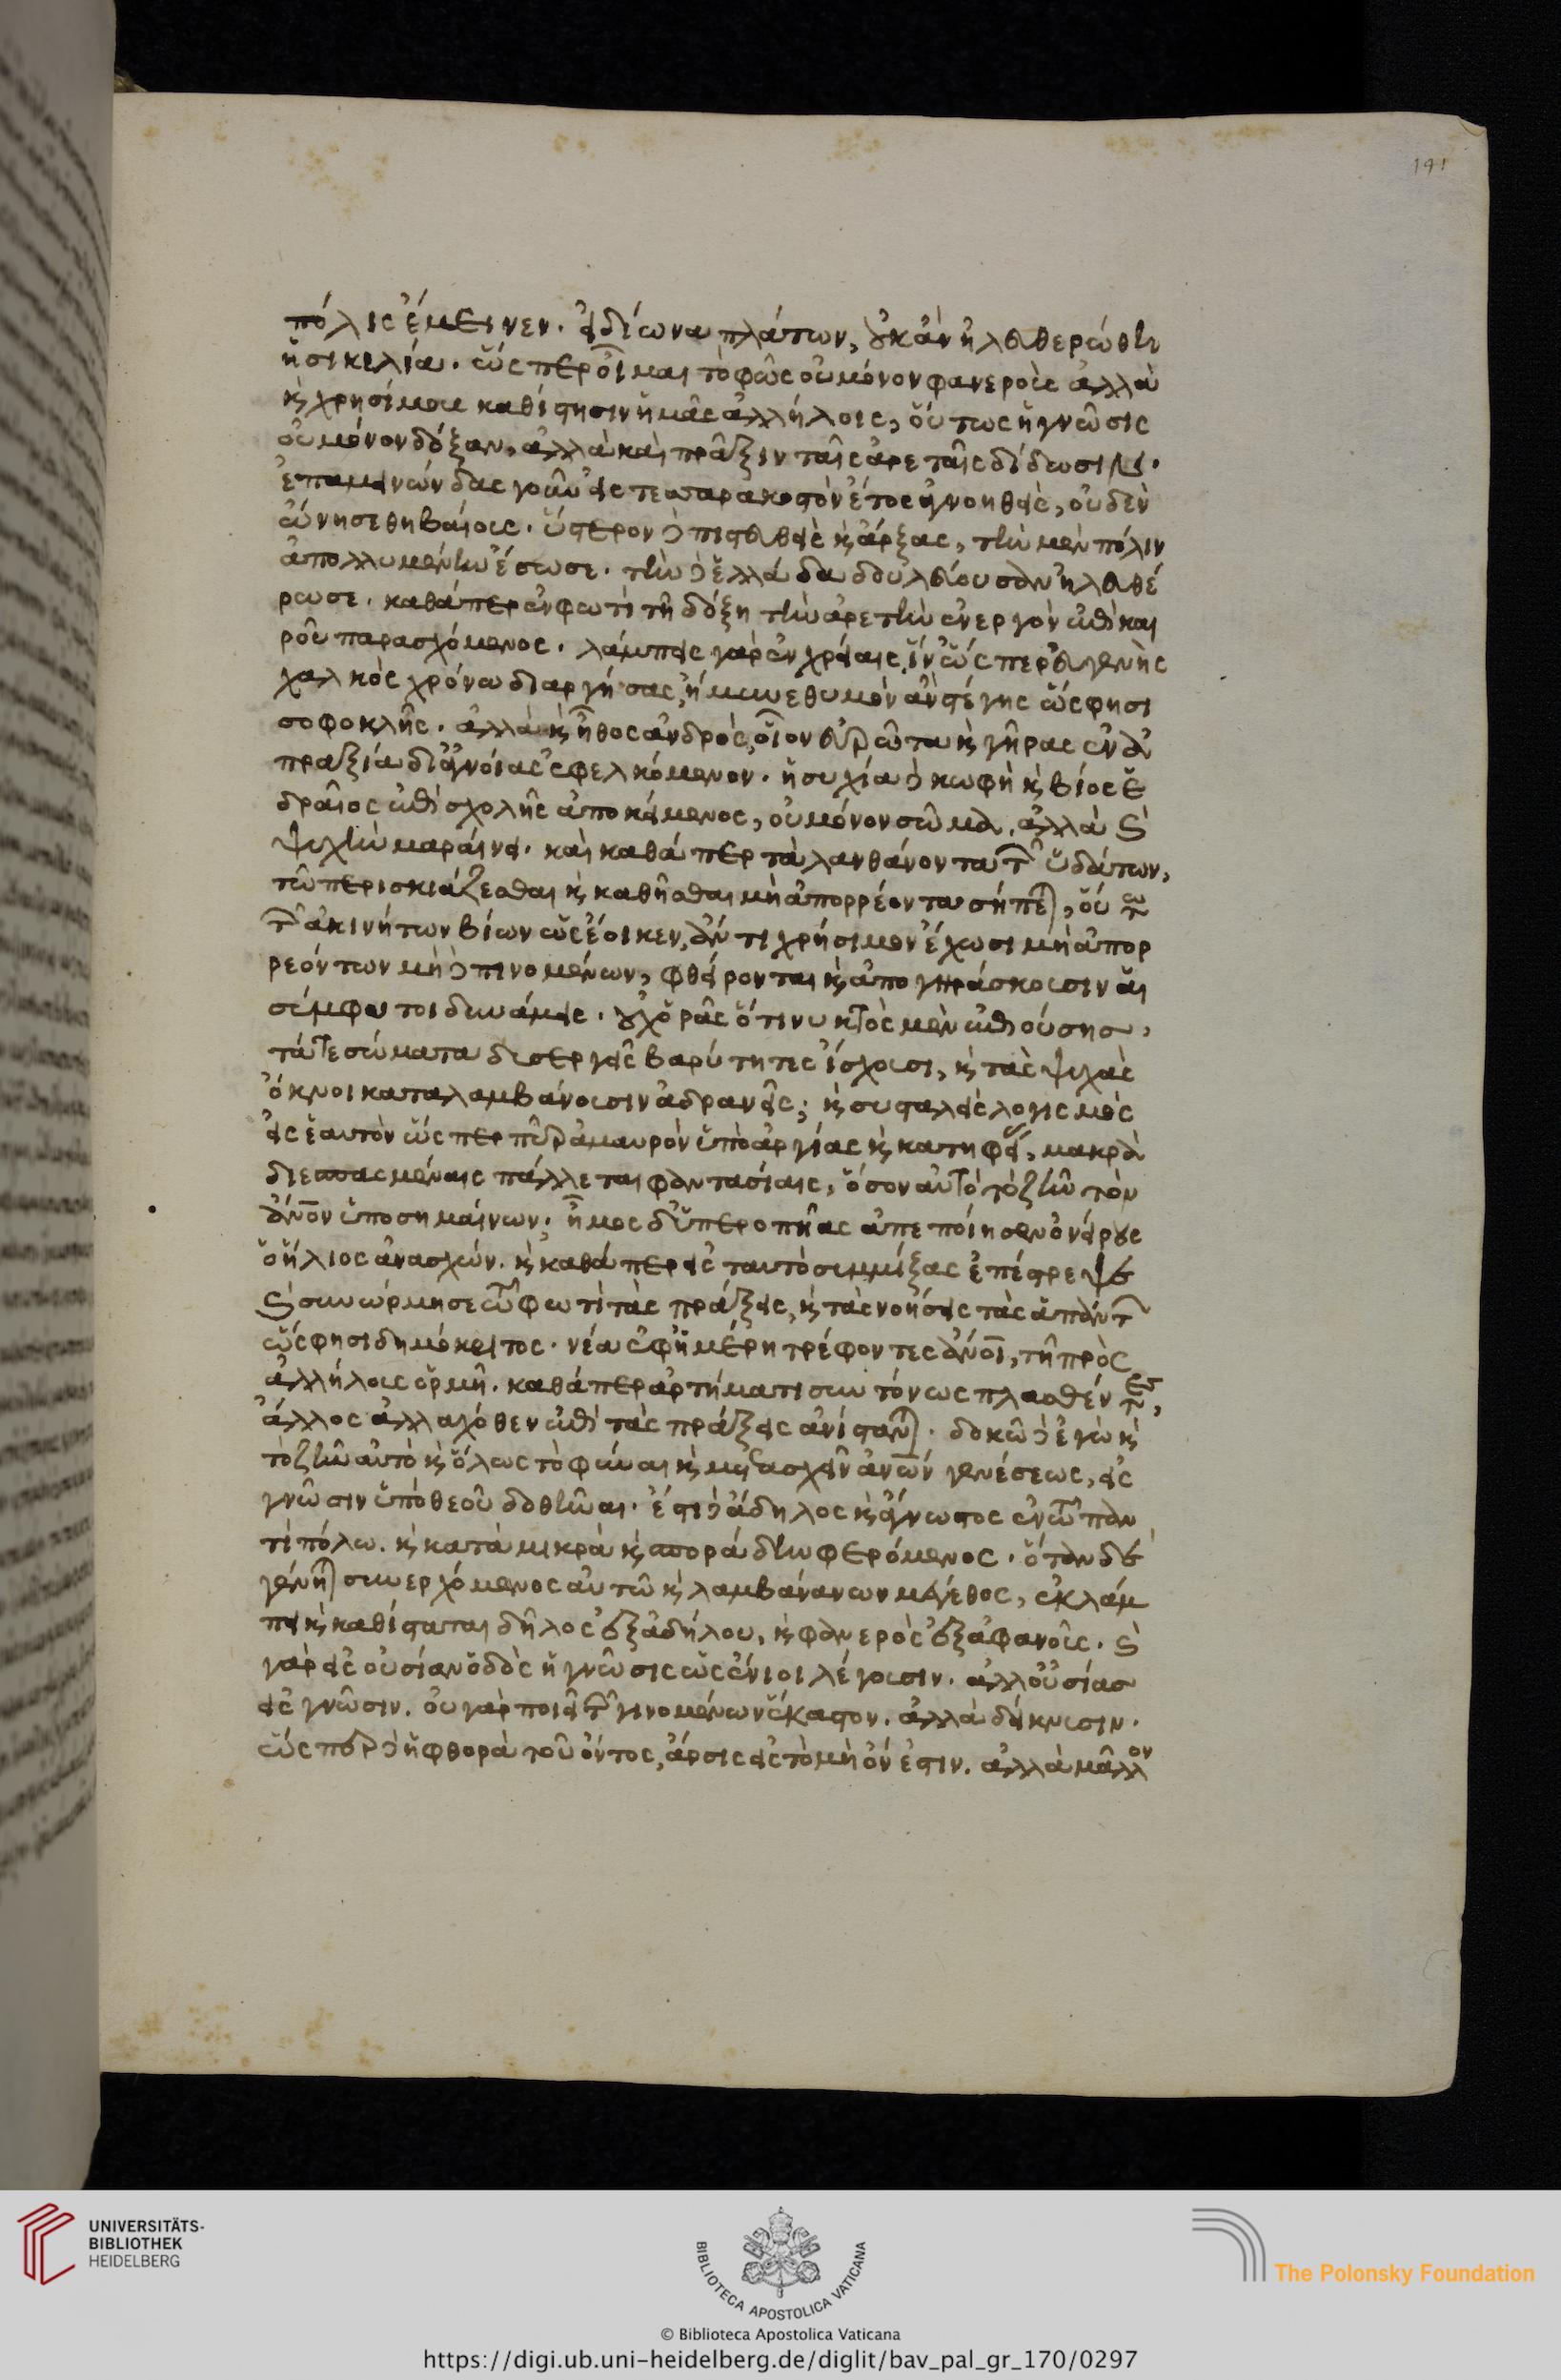 191
πόλις ἔμεινεν. εἰ δίωνα πλάτων, οὐκ ἂν ἠλευθερώθη
ἡ σικελία. ὡς περ οἶμαι τὸ φῶς οὐ μόνον φανεροὺς ἀλλὰ
κ χρησίμους καθίστησιν ἡμᾶς ἀλλήλοις, οὕτως ἡ γνῶσις
οὐ μόνον δόξαν, ἀλλὰ καὶ πρᾶξιν ταῖς ἀρεταῖς δίδωσιν.
ἐπαμεινώνδας γοῦν εἰς τεσσαρακοστὸν ἔτος ἀγνοηθεὶς, οὐδὲν
ὤνησε θηβαίους. ὕστερον δὲ πιστευθεὶς κ ἄρξας, τὴν μὲν πόλιν
ἀπολλυμένην ἔσωσε. τὴν δὲ ἑλλάδα δουλεύουσαν ἠλευθέ
ρωσε. καθάπερ ἐν φωτὶ τῇ δόξῃ τὴν ἀρετὴν ἐνεργὸν ἐπὶ και
ροῦ παρασχόμενος. λάμπει γὰρ ἐν χρείαις, ἵν ὥς περ εὐγενὴς
χαλκὸς χρόνω δ' ἀργήσας, ἤμυσε θυμὸν ἂν στέγης ὥς φησι
σοφοκλῆς. ἀλλὰ κ ἦθος ἀνδρὸς, οἷον εὐρῶτα κ γῆρας ἐν ἀ
πραξία δι' ἀγνοίας ἐφελκόμενον. ἡσυχία δὲ κωφὴ κ βίος ἑ
δραῖος ἐπὶ σχολῆς ἀποκείμενος, οὐ μόνον σῶμα, ἀλλὰ καὶ
ψυχὴν μαραίνει. καὶ καθάπερ τὰ λανθάνοντα τῶν ὑδάτων,
τῶ περισκιάζεσθαι κ καθῆσθαι μὴ ἀπορρέοντα σήπεται, οὕτω
τῶν ἀκινήτων βίων ὡς ἔοικεν, ἄν τι χρήσιμον ἔχωσι μὴ ἀπορ
ρεόντων μὴ δὲ πινομένων, φθείρονται κ ἀπογηράσκουσιν αἱ
σύμφυτοι δυνάμεις. οὐχ ὁρᾶς ὅτι νυκτὸς μὲν ἐπιούσης,
τά τε σώματα δυσεργεῖς βαρύτητες ἴσχουσι, κ τὰς ψυχὰς
ὄκνοι καταλαμβάνουσιν ἀδρανεῖς; κ συσταλεὶς λογισμὸς
εἰς ἑαυτὸν ὥς περ πῦρ ἀμαυρὸν ὑπὸ ἀργίας κ κατηφείας, μικρὰ
διεσπασμέναις πάλλεται φαντασίαις, ὅσον αὐτὸ τὸ ζῆν τὸν
ἄνον ὑποσημαίνων; ἦμος δ' ὑπεροπῆας ἀπεποίησεν ὀνείρους
ὁ ἥλιος ἀνασχών. κ καθάπερ εἰς ταυτὸ συμμίξας ἐπέστρεψε
καὶ συνώρμησε τῶ φωτὶ τὰς πράξεις, κ τὰς νοήσεις τὰς ἁπάντων
ὥς φησι δημόκριτος. νέα ἐφ' ἡμέρη τρέφοντες ἄνοι, τῇ πρὸς
ἀλλήλους ὁρμῇ. καθάπερ ἀρτήματι συντόνως πλασθέντες,
ἄλλος ἀλλαχόθεν ἐπὶ τὰς πράξεις ἀνίστανται. δοκῶ δὲ ἐγὼ κ
τὸ ζῆν αὐτὸ κ ὅλως τὸ φῦναι κ μετασχεῖν ἀνων γενέσεως, εἰς
γνῶσιν ὑπὸ θεοῦ δοθῆναι. ἔστι δὲ ἄδηλος κ ἄγνωστος ἐν τῶ παν
τὶ πόλω. κ κατὰ μικρὰ κ σποράδην φερόμενος. ὅταν δὲ
γένηται συνερχόμενος αὑτῶ κ λαμβάνων μέγεθος, ἐκλάμ
πει κ καθίσταται δῆλος ἐξ ἀδήλου, κ φανερὸς ἐξ ἀφανοῦς. οὐ
γὰρ εἰς οὐσίαν ὁδὸς ἡ γνῶσις ὡς ἔνιοι λέγουσιν. ἀλλ' οὐσίας
εἰς γνῶσιν. οὐ γὰρ ποιεῖ τῶν γινομένων ἕκαστον. ἀλλὰ δείκνυσιν.
ὥς περ δὲ ἡ φθορὰ τοῦ ὄντος, ἄρσις εἰς τὸ μὴ ὄν ἐστιν. ἀλλὰ μᾶλλον
UNIVERSITÄTS-
BIBLIOTHEK
HEIDELBERG
BIBLIOTECA APOSTOLICA VATICANA
The Polonsky Foundation
© Biblioteca Apostolica Vaticana
https://digi.ub.uni-heidelberg.de/diglit/bav_pal_gr_170/0297